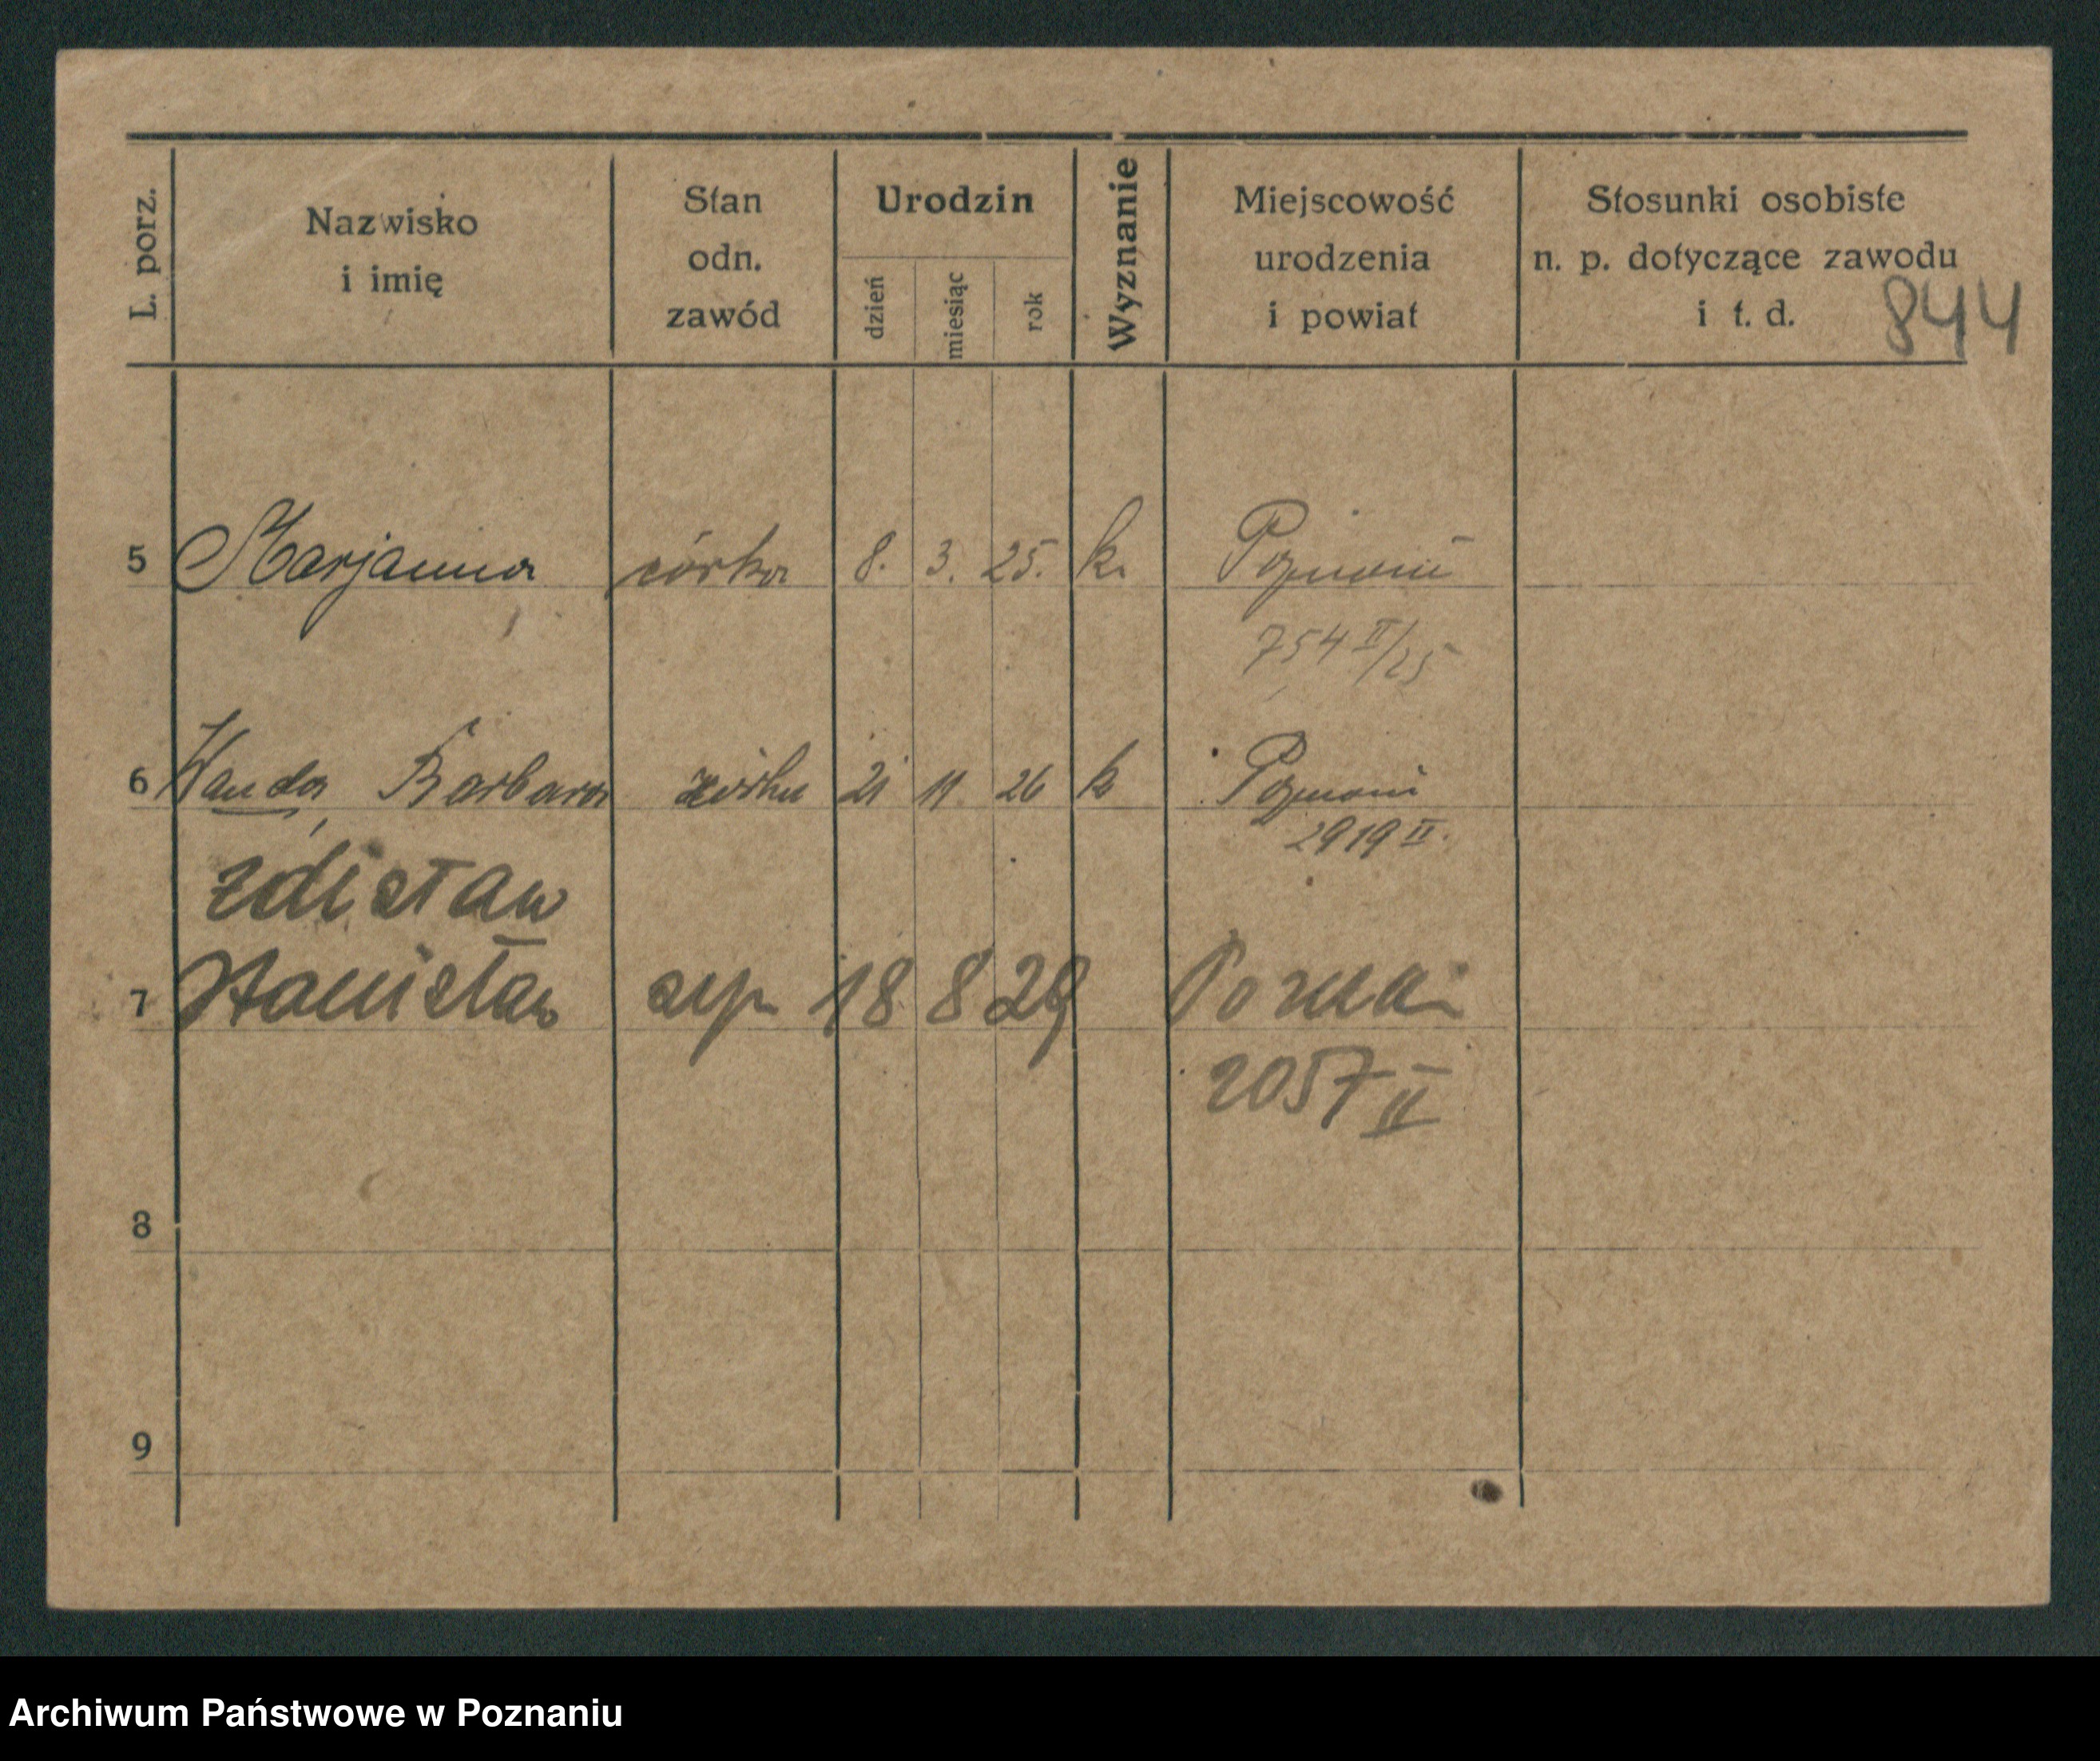 L. porz. Nazwisko i imię Stan odn. zawód Urodzin dzień miesiąc rok Wyznanie Miejscowość urodzenia i powiat Stosunki osobiste n. p. dotyczące zawodu i t. d.
844
5 Marjanna córka 8. 3. 25. k. Poznań
754 II/25
6 Wanda, Barbara córka 21 11 26 k Poznań
2919 II.
Zdisław
7 Stanisław syn 18 8 29 Poznań
2057 II
8
9
Archiwum Państwowe w Poznaniu